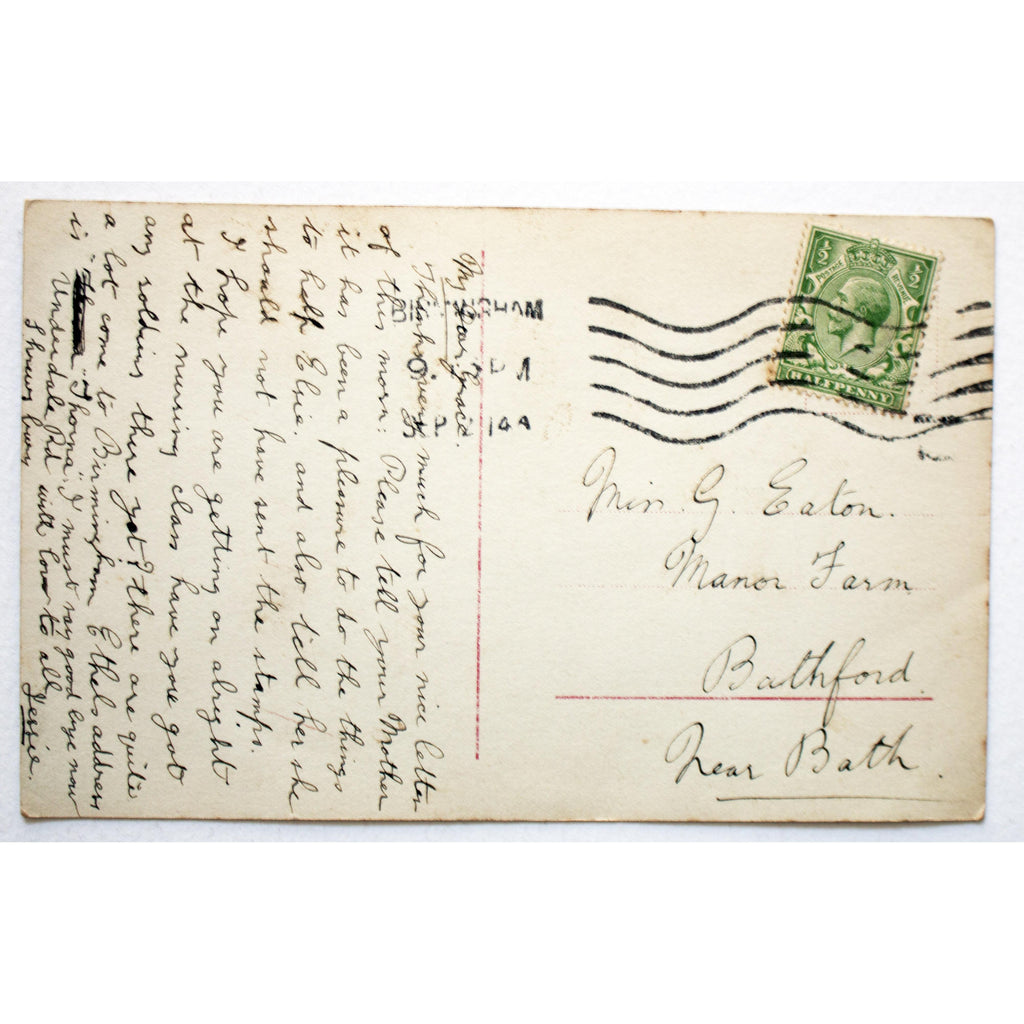 My dear Grace.
Thank you very much for your nice letter
of this morn: Please tell your Mother
it has been a pleasure to do the things
to help Elsie. and also tell her she
should not have sent the stamps.
I hope you are getting on alright
at the nursing class have you got
any soldiers there yet? there are quite
a lot come to Birmingham Ethels address
is "Thorna". I must say good bye now
Underdale Rd with love to all
Shrewsbury Jessie.
BIRMINGHAM
PM
14
½ ½
POSTAGE REVENUE
HALFPENNY
Miss G. Eaton.
Manor Farm
Bathford.
Near Bath.